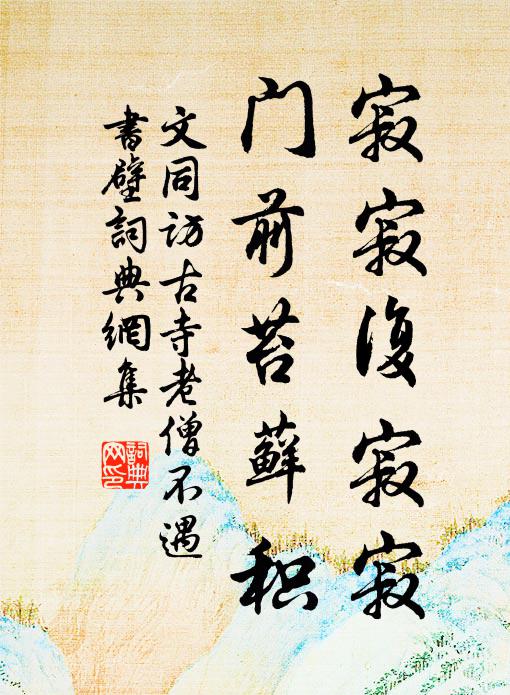 寂寂復寂寂
门前苔蘚积
文同访古寺老僧不遇
書壁詞典網集
詞典网印